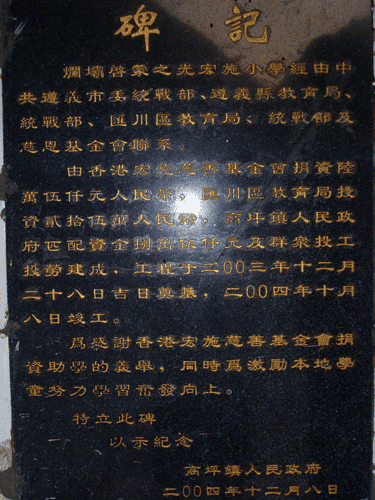 碑記
爛壩啓蒙之光宏施小學經由中
共遵義市委統戰部、遵義縣教育局、
統戰部、匯川區教育局、統戰部及
慈恩基金會聯系。
由香港宏施慈善基金會捐資陸
萬伍仟元人民幣,匯川區教育局投
資貳拾伍萬人民幣,高坪鎮人民政
府匹配資金捌萬伍仟元及群衆投工
投勞建成,工程于二00三年十二月
二十八日吉日奠基,二00四年十月
八日竣工。
爲感謝香港宏施慈善基金會捐
資助學的義舉,同時爲激勵本地學
童努力學習奮發向上。
特立此碑
以示紀念
高坪鎮人民政府
二00四年十二月八日